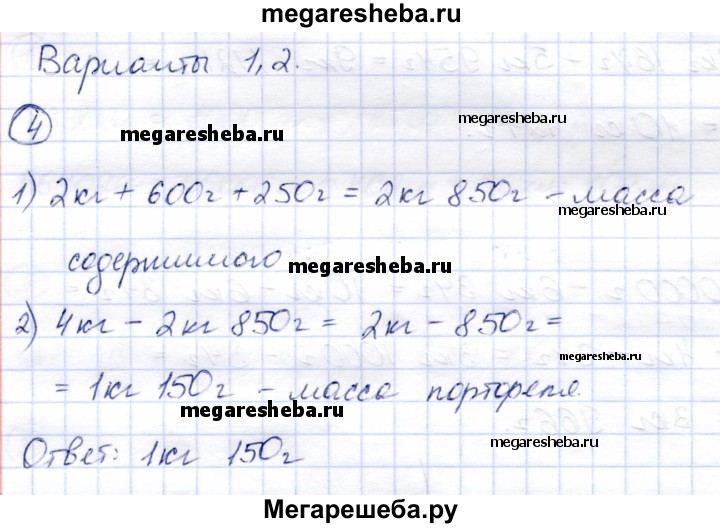 megaresheba.ru
Варианты 1,2.
4
megaresheba.ru
megaresheba.ru
1) 2кг + 600г + 250г = 2кг 850г - масса
megaresheba.ru
содержимого
megaresheba.ru
2) 4кг - 2кг 850г = 2кг - 850г =
megaresheba.ru
= 1кг 150г - масса портфеля.
megaresheba.ru
megaresheba.ru
Ответ: 1кг 150г
Мегарешеба.ру